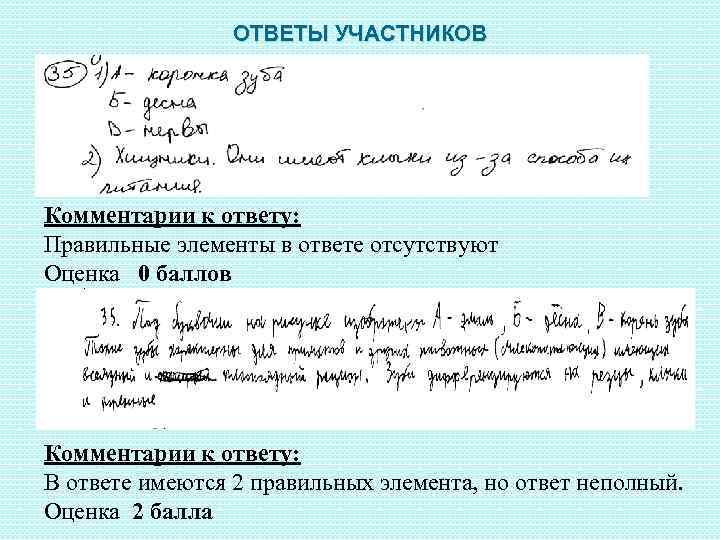 ОТВЕТЫ УЧАСТНИКОВ
35 1) А - коронка зуба
Б - десна
В - нервы
2) Хищники. Они имеют клыки из-за способа их
питания.
Комментарии к ответу:
Правильные элементы в ответе отсутствуют
Оценка 0 баллов
35. Под буквами на рисунке изображены А - эмаль, Б - десна, В - корень зуба
Такие зубы характерны для приматов и других животных (млекопитающих) имеющих
всеядный и плотоядный рацион. Зубы дифференцируются на резцы, клыки
и коренные
Комментарии к ответу:
В ответе имеются 2 правильных элемента, но ответ неполный.
Оценка 2 балла